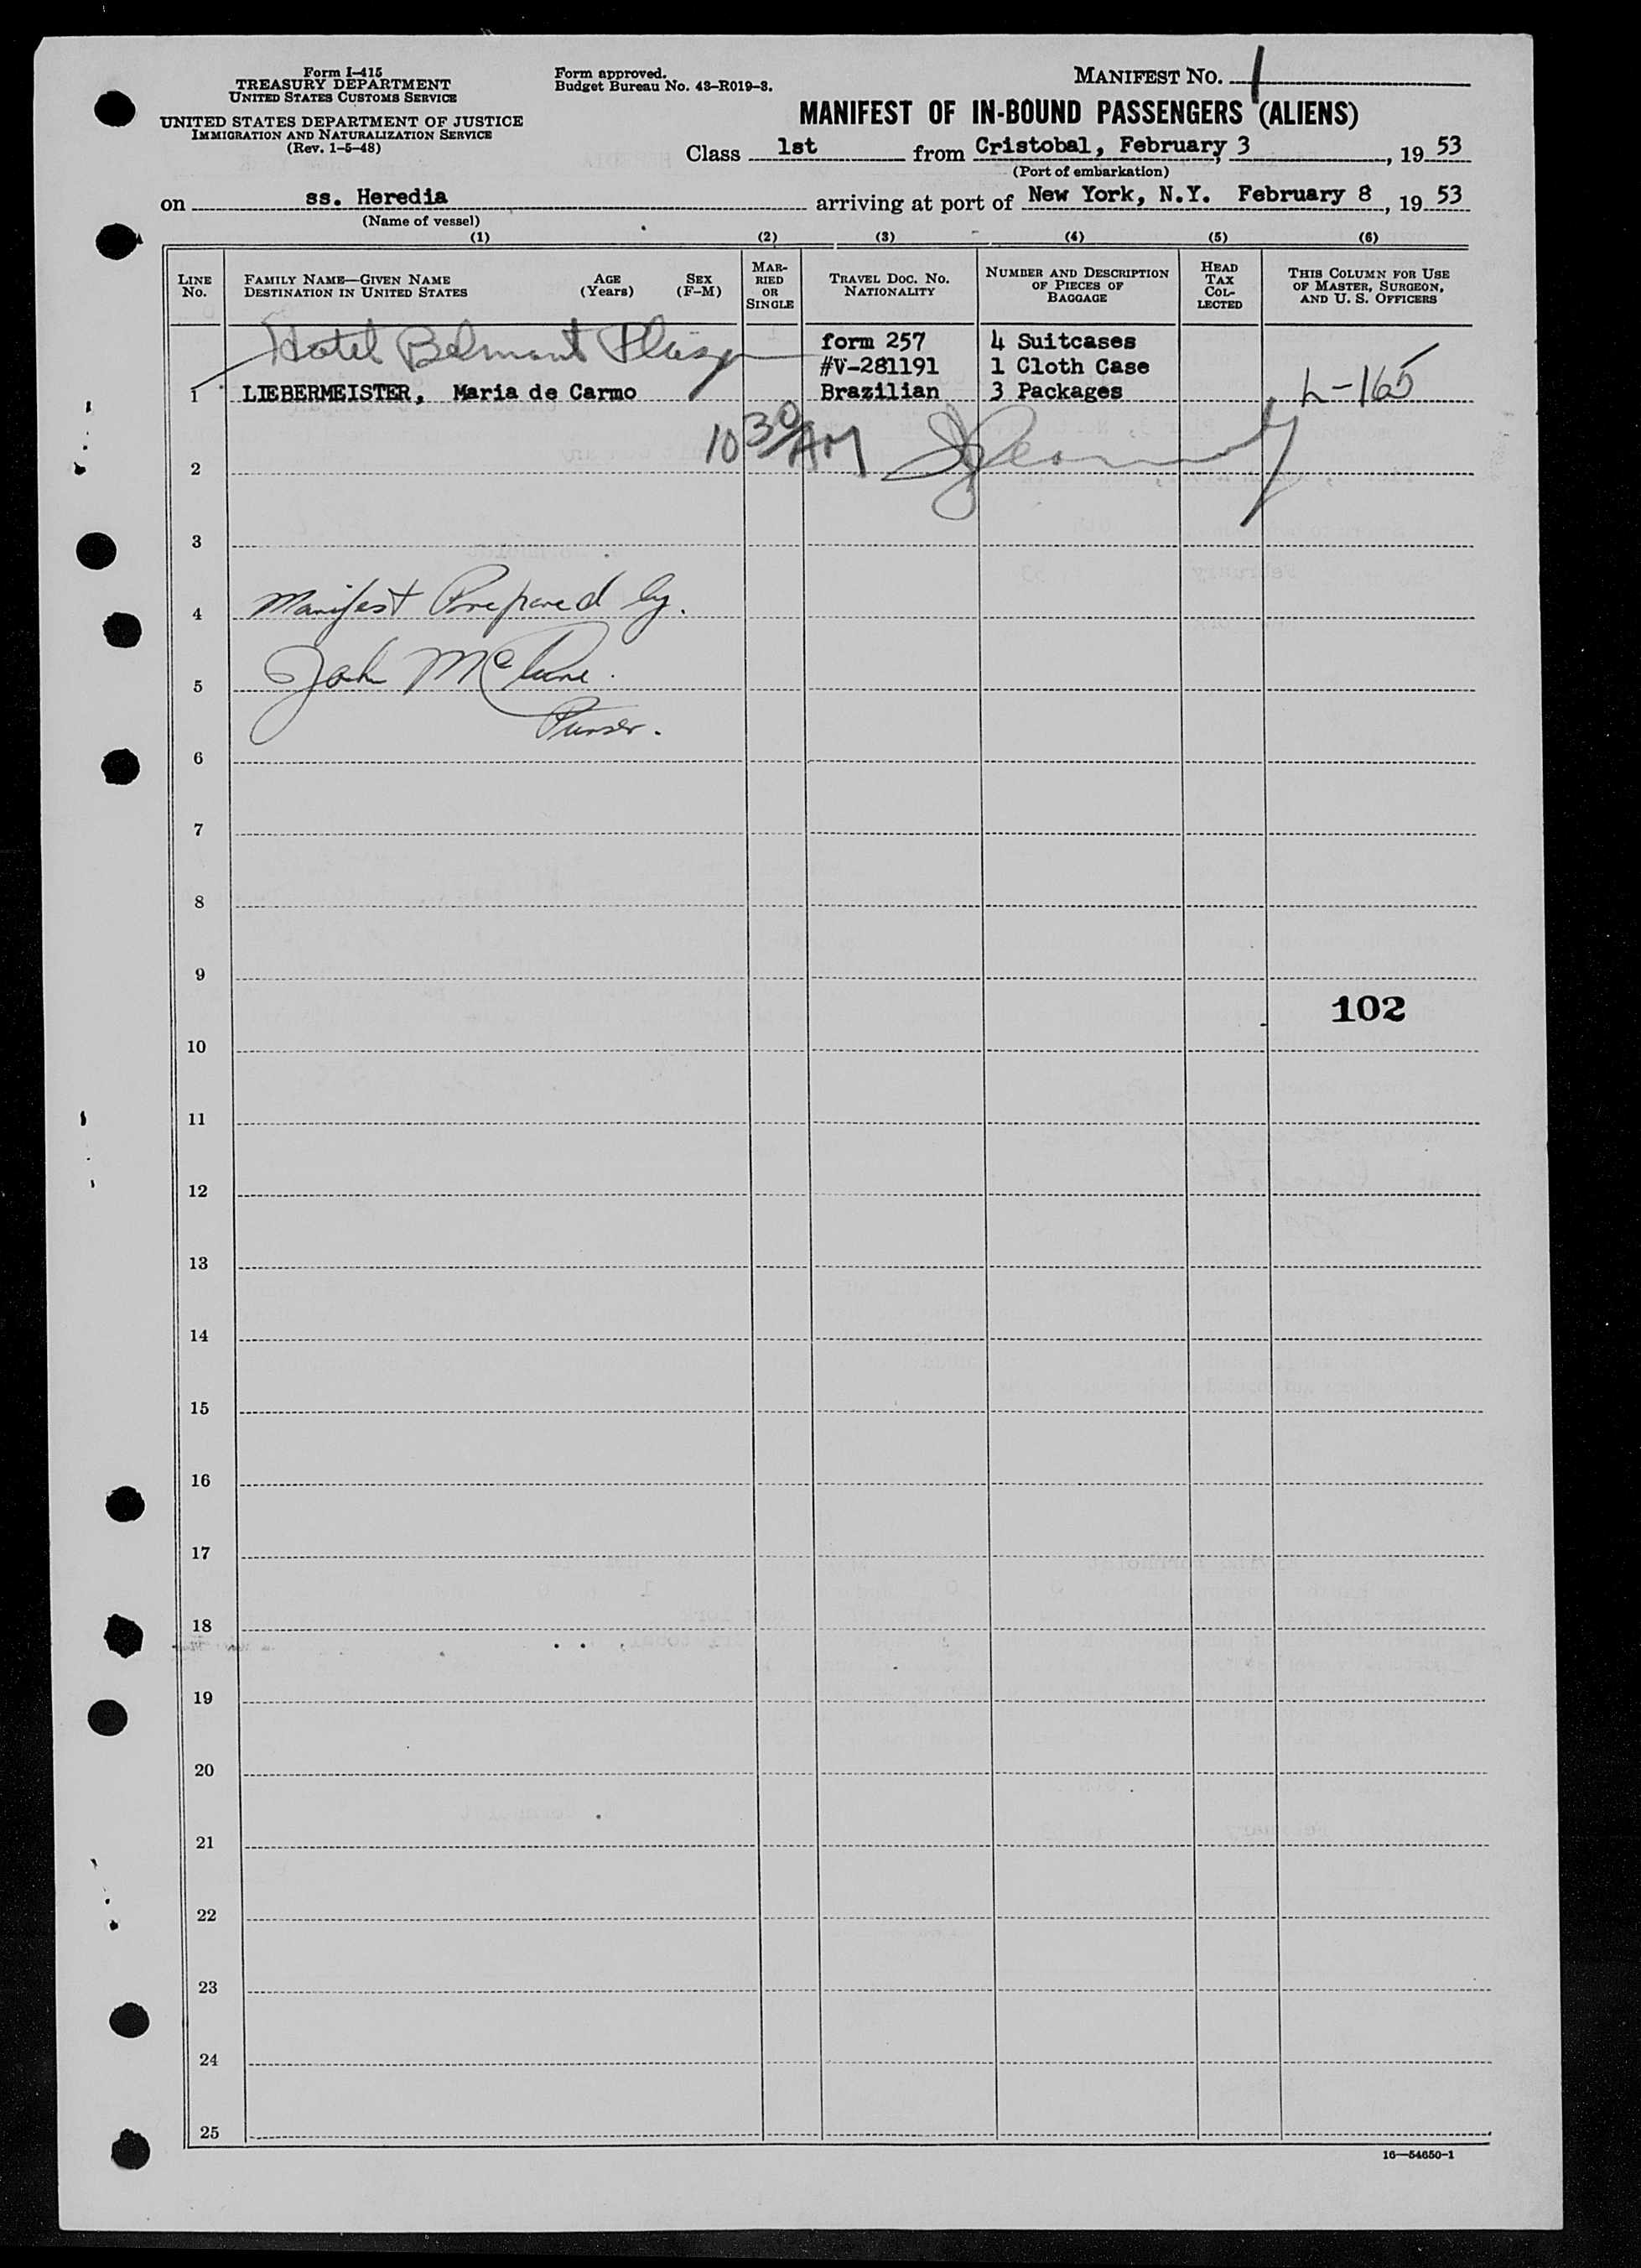 Form I-415
TREASURY DEPARTMENT
UNITED STATES CUSTOMS SERVICE
UNITED STATES DEPARTMENT OF JUSTICE
IMMIGRATION AND NATURALIZATION SERVICE
(Rev. 1-5-48)
Form approved.
Budget Bureau No. 43-R019-3.
MANIFEST NO. 1
MANIFEST OF IN-BOUND PASSENGERS (ALIENS)
Class 1st from Cristobal, February 3, 19 53
(Port of embarkation)
on ss. Heredia arriving at port of New York, N.Y. February 8, 19 53
(Name of vessel)
(1) (2) (3) (4) (5) (6)
LINE No.
FAMILY NAME—GIVEN NAME
DESTINATION IN UNITED STATES
AGE (Years)
SEX (F-M)
MARRIED OR SINGLE
TRAVEL DOC. NO.
NATIONALITY
NUMBER AND DESCRIPTION OF PIECES OF BAGGAGE
HEAD TAX COLLECTED
THIS COLUMN FOR USE OF MASTER, SURGEON, AND U. S. OFFICERS
Hotel Belmont Plaza form 257 4 Suitcases
#V-281191 1 Cloth Case
1 LIEBERMEISTER, Maria de Carmo Brazilian 3 Packages L-165
10 30 AM
2
3
4 Manifest Prepared by.
5 John
Purser.
6
7
8
9
102
10
11
12
13
14
15
16
17
18
19
20
21
22
23
24
25
16—54650-1